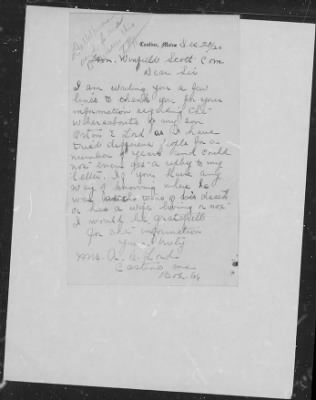 Castine, Maine Dec 28/20
Hon. Winfield Scott Com
Dear Sir
I am writing you a few
lines to thank you for your
information regarding the
whereabouts of my son
Lord as I have
tried different for a
number of years and could
not even get a reply to my
letter. If you have any
way of knowing where he
was at the time of his death
or has a wife living or not
I would be grateful
for all information
Yours truly
Mrs. A. Lord
Castine Me
Box 64